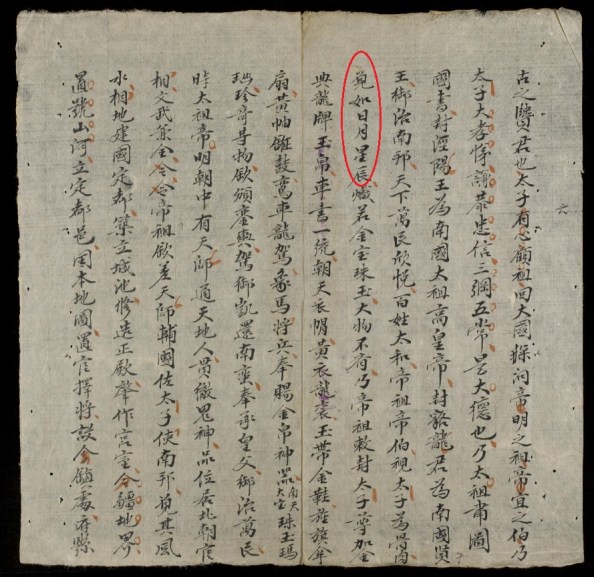 六
古之賢君也太子有心顧祖回大國探詢帝明之祖帝宜之伯乃
太子大孝悌謝恭忠信三綱五常是大德也乃太祖肅圖
國書封涇陽王為南國太祖高皇帝封貉龍君為南國賢
王御治南邦天下萬民欣悅百姓太和帝祖帝伯視太子為骨肉
覓如日月星辰熾若金宝珠玉大物不有乃帝祖敕封太子尊加金
典龍牌玉帛車書一統朝天衣帽黃衣龍衮玉帶金鞋旌旗傘
扇黃帕鑼鼓鸞車龍駕象馬將兵奉賜金帛神器南天大宝珠玉瑪
瑙珍奇等物欽頒鑾輿駕御凱還南蛮奉承皇父御治萬民
時太祖帝明朝中有天師通天地人貫徹鬼神品位居北朝官
相文武兼全令帝祖欽差天師輔國佐太子使南邦覓其風
水相地建國定都築立城池修造正殿肇作宮室分疆地界
置號山河立定都邑固本地圖置官擇將設鎮處府縣